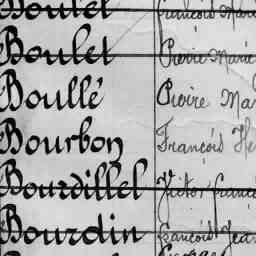 Boulet François Marie
Boulet Pierre Marie
Boullé Pierre Mar
Bourbon François He
Bourdillel Victor franc
Bourdin françois Jean